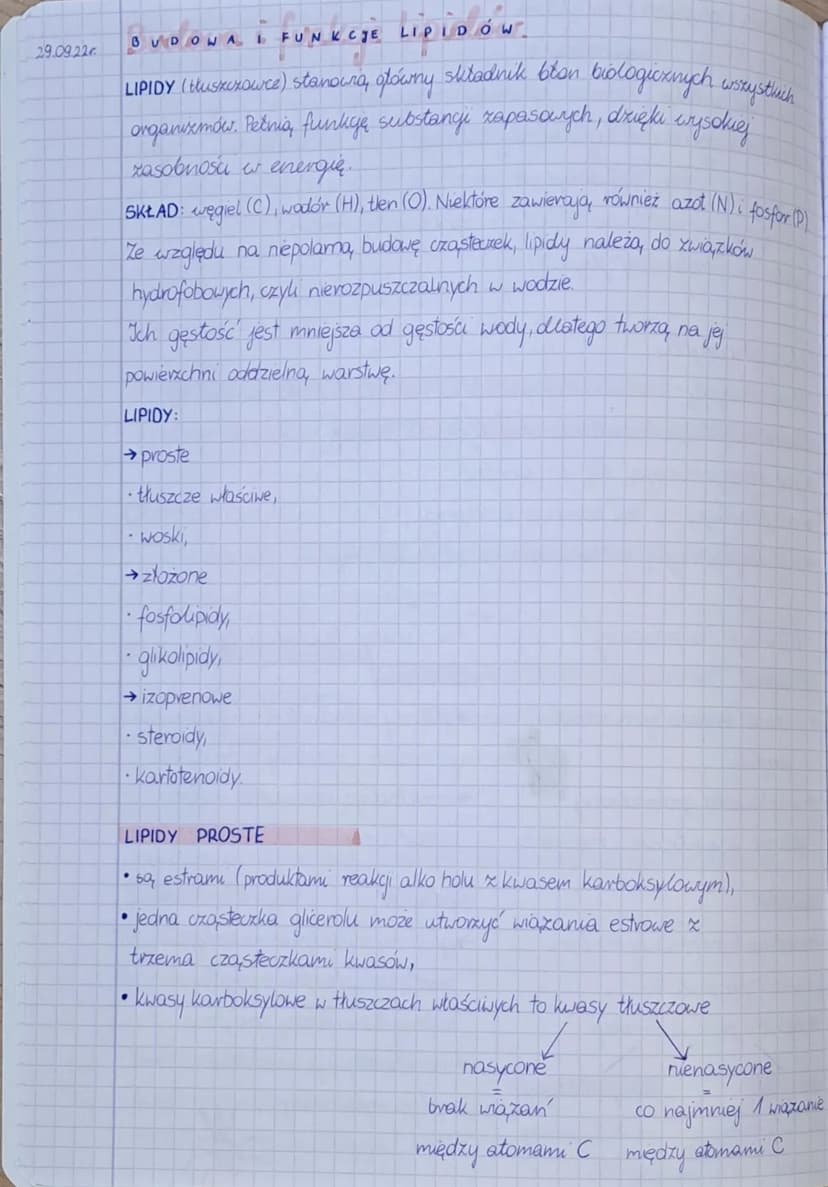 Budowa i funkcje lipidów
29.09.22r. BUDOWA i FUNKCJE LIPIDÓW.
LIPIDY (tłuszczowce) stanowią główny składnik błon biologicznych wszystkich
organizmów. Pełnią funkcję substancji zapasowych, dzięki wysokiej
zasobności w energię.
SKŁAD: węgiel (C), wodór (H), tlen (O). Niektóre zawierają również azot (N) i fosfor (P)
Ze względu na niepolarną budowę cząsteczek, lipidy należą do związków
hydrofobowych, czyli nierozpuszczalnych w wodzie.
Ich gęstość jest mniejsza od gęstości wody, dlatego tworzą na jej
powierzchni oddzielną warstwę.
LIPIDY:
→ proste
· tłuszcze właściwe,
· woski,
→ złożone
· fosfolipidy,
· glikolipidy,
→ izoprenowe
· steroidy,
· kartotenoidy.
LIPIDY PROSTE
• są estrami (produktami reakcji alkoholu z kwasem karboksylowym),
• jedna cząsteczka glicerolu może utworzyć wiązania estrowe z
trzema cząsteczkami kwasów,
• kwasy karboksylowe w tłuszczach właściwych to kwasy tłuszczowe
nasycone nienasycone
= =
brak wiązań co najmniej 1 wiązanie
między atomami C między atomami C